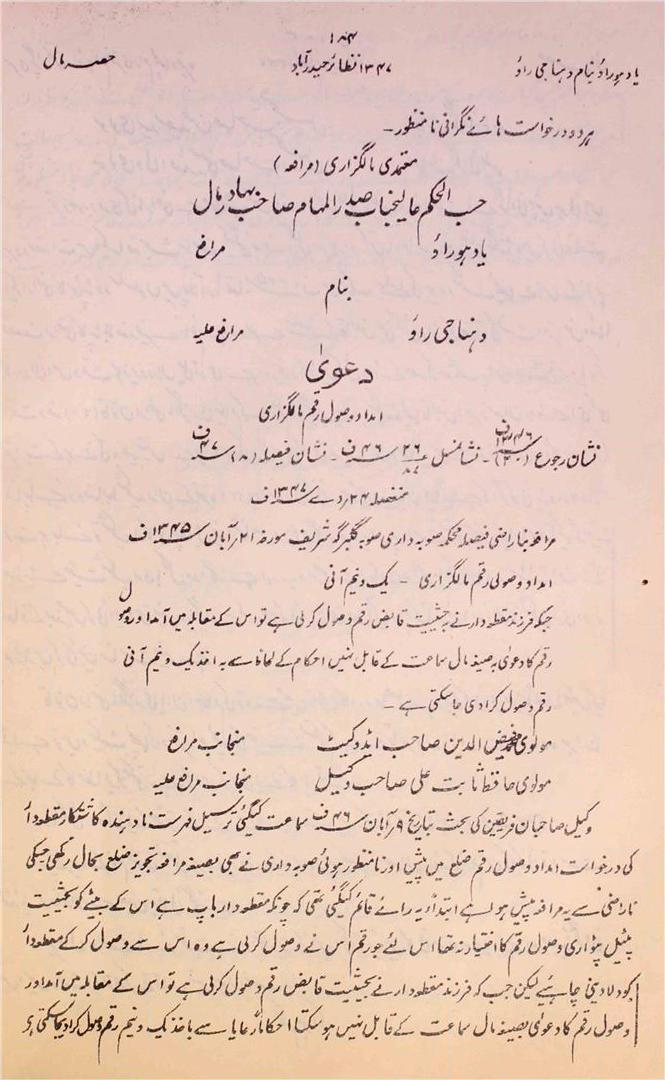 ۱۸۴
یادہوراؤ بنام دہناجی راؤ ۱۳۴۷ نظائر حیدرآباد حصہ مال
ہردو درخواست ہائے نگرانی نامنظور۔
معتمدی مالگزاری (مرافعہ)
حسب الحکم عالیجناب صدر المہام صاحب بہادر مال
یادہوراؤ مرافع
بنام
دہناجی راؤ مرافع علیہ
دعویٰ
امداد وصول رقم مالگزاری
نشان رجوع (۳۰) ۱۳۴۶ف۔ نشانمثل ۲۶ ۴۶ف۔ نشان فیصلہ (۸) ۴۷ف
منفصلہ ۲۴ر دے ۱۳۴۷ف
مرافعہ بناراضی فیصلہ محکمہ صوبہ داری صوبہ گلبرگہ شریف مورخہ ۲۱ر آبان ۱۳۴۵ف
امداد وصولی رقم مالگزاری - یک ونیم آنی
جبکہ فرزند مقطعہ دار نے بحیثیت قابض رقم وصول کرلی ہے تو اس کے مقابلہ میں امداد وصول
رقم کا دعویٰ بصیغہ مال سماعت کے قابل نہیں احکام کے لحاظ سے بہ اخذ یک ونیم آنی
رقم وصول کرادی جاسکتی ہے۔
مولوی محمد فیض الدین صاحب ایڈوکیٹ منجانب مرافع
مولوی حافظ ثابت علی صاحب وکیل منجانب مرافع علیہ
وکیل صاحبان فریقین کی بحث بتاریخ ۹ر آبان ۴۶ف سماعت کیگئی ترسیل فہرست نادہندہ کاشتکار مقطعہ دار
کی درخواست امداد وصول رقم ضلع میں پیش اور نامنظور ہوئی صوبہ داری نے بھی بصیغہ مرافعہ تجویز ضلع بحال رکھی جسکی
ناراضی سے یہ مرافعہ پیش ہوا ہے ابتداً یہ رائے قائم کیگئی تھی کہ چونکہ مقطعہ دار باپ ہے اس کے بیٹے کو بحیثیت
پٹیل پٹواری وصول رقم کا اختیار نہ تھا اس لئے جو رقم اس نے وصول کرلی ہے وہ اس سے وصول کرکے مقطعہ دار
کو دلا دینی چاہئے لیکن جب کہ فرزند مقطعہ دار نے بحیثیت قابض رقم وصول کرلی ہے تو اس کے مقابلہ میں امداد
وصول رقم کا دعویٰ بصیغہ مال سماعت کے قابل نہیں ہو سکتا احکاماً رعایا سے باخذ یک ونیم رقم وصول کرادیجا سکتی ہے